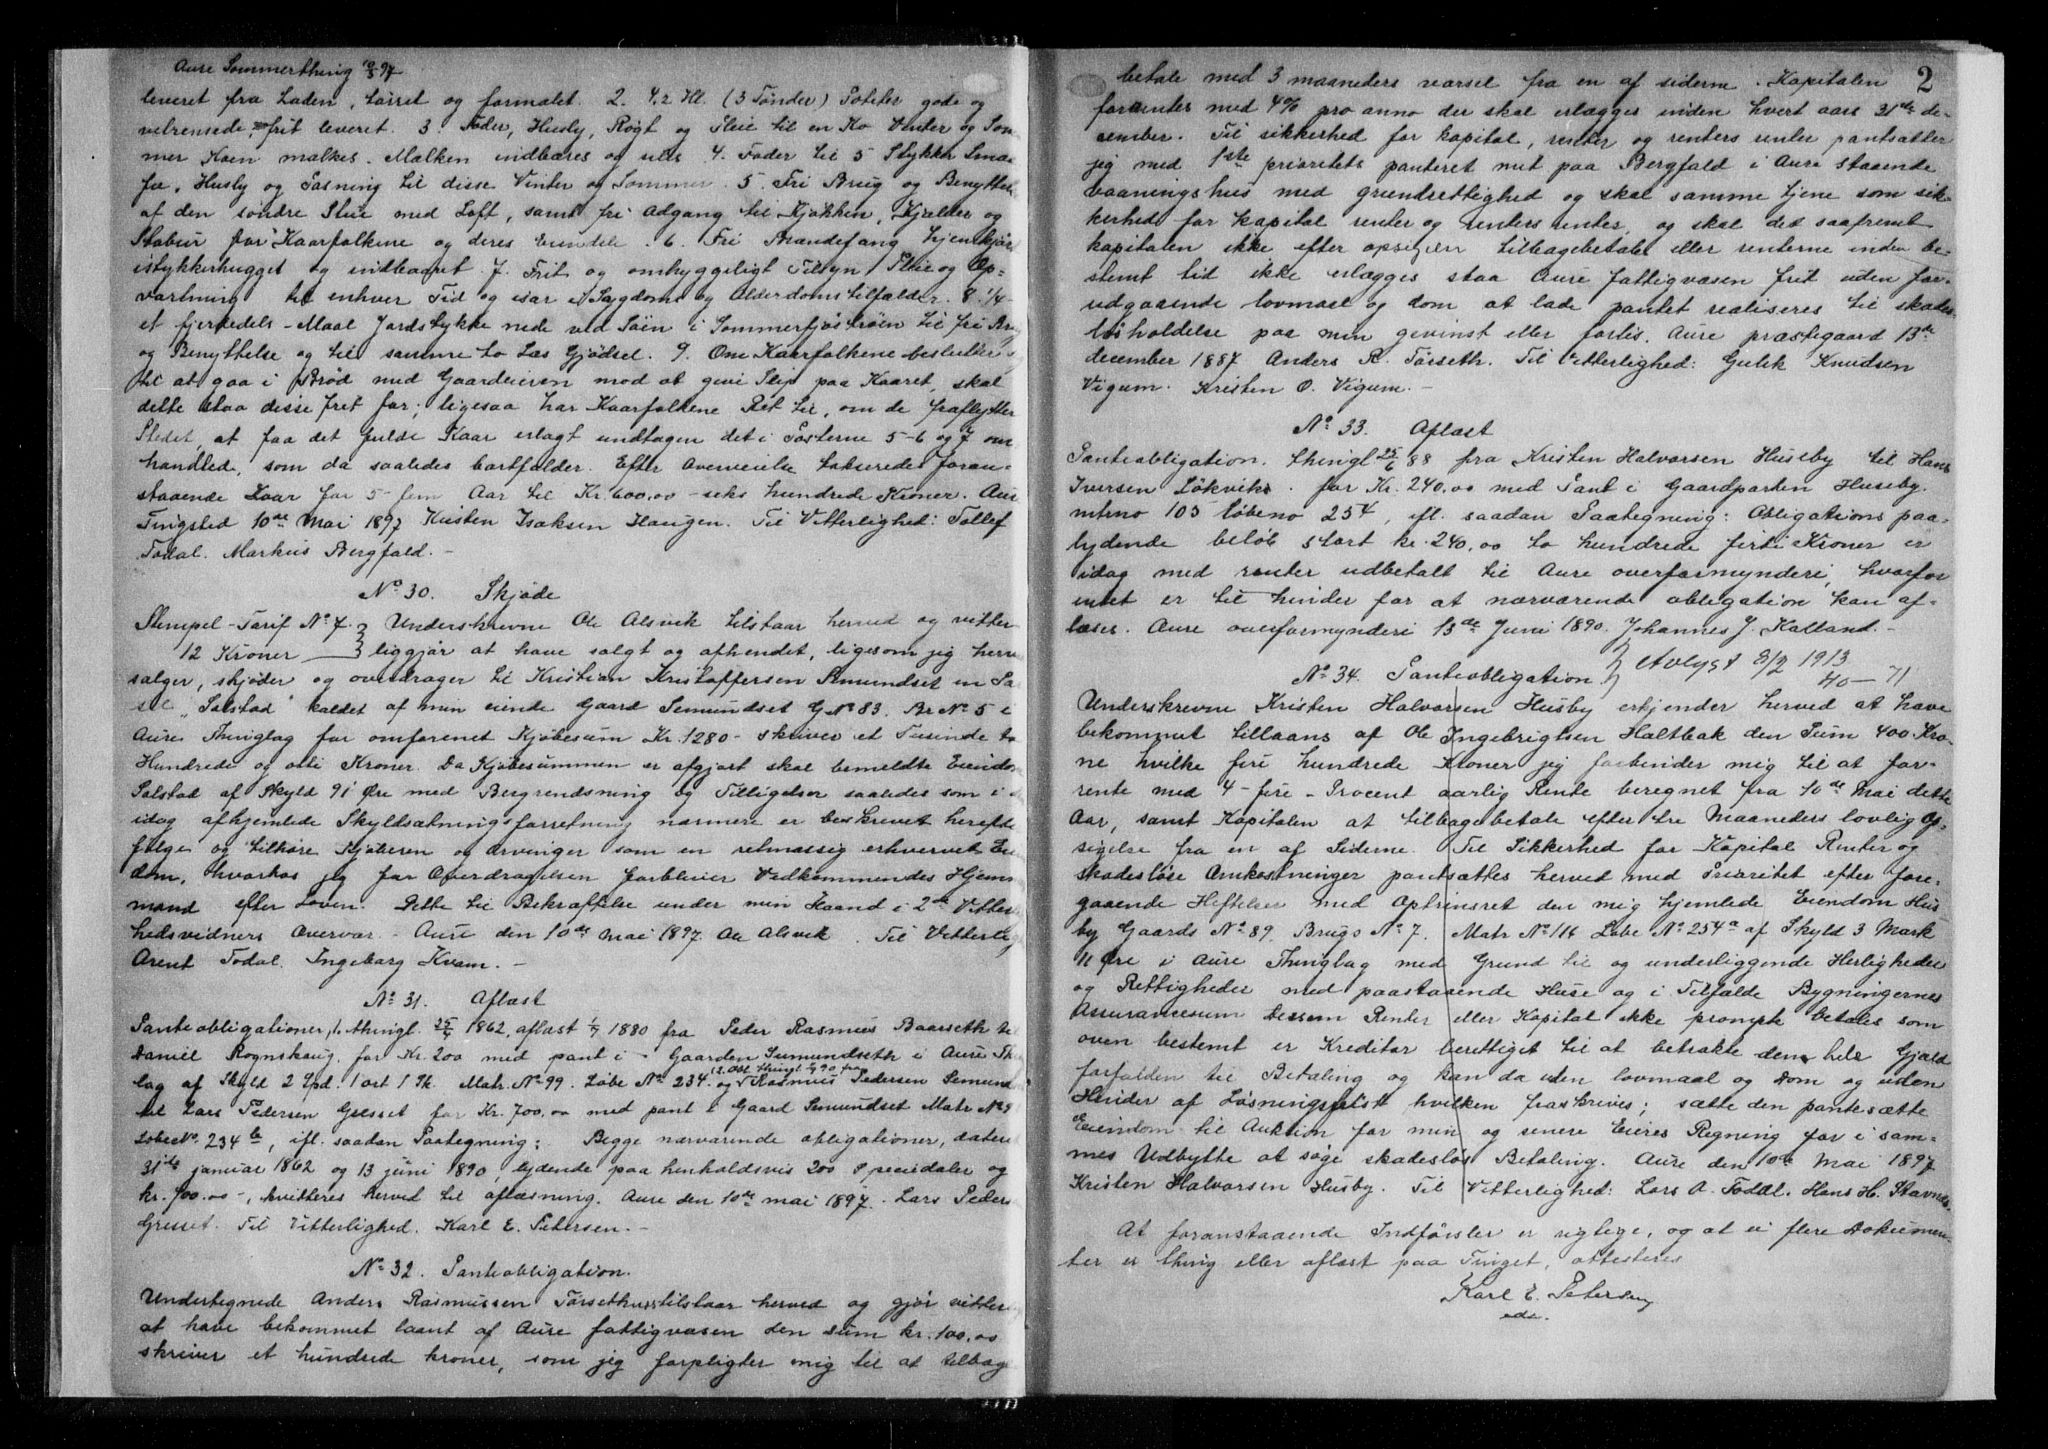 Aure Sommerthing 10/5 97
leveret fra Laden, tørret og formalet. 2. 4,2 Hl. (3 Tønder) Poteter gode og
velrensede, frit leveret. 3. Foder, Husly, Røgt og Pleie til en Ko Vinter og Som
mer Koen malkes. Mælken indbæres og siles 4. Foder til 5 Stykker Smaa
fæ, Husly og Pasning til disse Vinter og Sommer. 5. Fri Brug og Benyttels
af den søndre Stue med Loft, samt fri Adgang til Kjøkken, Kjælder og
Stabur for Kaarfolkene og deres Eiendele. 6. Fri Brændefang hjemkjørt
istykkerhugget og indbaaret. 7. Frit og omhyggeligt Tilsyn Pleie og Op-
vartning til enhver Tid og især i Sygdoms og Alderdomstilfælder. 8. 1/4
et fjerdedels-Maal Jordstykke nede ved Søen i Sommerfjøstrøen til fri Brug
og Benyttelse og til samme to Læs Gjødsel. 9. Om Kaarfolkene beslutter
til at gaa i Brød med Gaardeieren mod at give Slip paa Kaaret, skal
dette staa disse frit for; ligesaa har Kaarfolkene Ret til, om de fraflytter
Stedet, at faa det fulde Kaar erlagt undtagen det i Posterne 5-6 og 7 om
handlede, som da saaledes bortfalder. Efter Overveielse takseredes foran-
staaende Kaar for 5-fem Aar til Kr. 600,00 - seks hundrede Kroner. Aure
Tingsted 10de Mai 1897 Kristen Isaksen Haugen. Til Vitterlighed: Tollef
Todal. Markus Bergfald. -
No 30. Skjøde
Stempel-Tarif No 7. } Underskrevne Ole Alsvik tilstaar herved og vitter
12 Kroner } liggjør at have solgt og afhændet, ligesom jeg herve
sælger, skjøder og overdrager til Kristian Kristoffersen Semundset en Pa
sel "Solstad" kaldet af min eiende Gaard Semundset G No 83. Br No 5 i
Aure Thinglag for omforenet Kjøbesum Kr. 1280 - skriver et Tusinde to
Hundrede og otti Kroner. Da Kjøbesummen er afgjort skal bemeldte Eiendo
Solstad af Skyld 91 Øre med Bergrendsning og Tilligelser saaledes som i
idag afhjemlede Skyldsætningsforretning nærmere er beskrevet herefte
følge og tilhøre Kjøberen og Arvinger som en retmæssig erhvervet Eien
dom, hvorhos jeg for Overdragelsen forbliver Vedkommendes Hjem
mand efter Loven. Dette til Bekræftelse under min Haand i 2de Vitter
hedsvidners Overvær. - Aure den 10de Mai 1897. Ole Alsvik. Til Vitterlig
Arent Todal. Ingeborg Kvam. -
No 31. Aflæst
Panteobligationer, 1. thingl. 25/4 1862, aflæst 1/7 1880 fra Peder Rasmus Baarseth til
Daniel Rognskaug. for Kr. 200 med pant i Gaarden Semundseth i Aure Th
lag af Skyld 2 Spd. 1 ort 1 Sk. Matr. No 99. Løbe No 234. og
2. Obl. thingl. 90 fra
Rasmus Pedersen Semund
til Lars Pedersen Gresset for Kr. 700,00 med pant i Gaard Semundset Matr No 9
Løbeno. 234 b, ifl. saadan Paategning: Begge nærværende obligationer, datere
31te januar 1862 og 13 juni 1890, lydende paa henholdsvis 200 Speciedaler og
kr. 700.00 -, kvitteres herved til aflæsning. Aure den 10de mai 1897. Lars Peders
Gresset. Til Vitterlighed. Karl E. Petersen. -
No 32. Panteobligation.
Undertegnede Anders Rasmussen Torseth tilstaar herved og gjør vitter
at have bekommet laant af Aure fattigvæsen den sum kr. 100.00
skriver et hundrede kroner, som jeg forpligter mig til at tilbag
2
betale med 3 maaneders varsel fra en af siderne. Kapitalen
forrentes med 4% pro anno der skal erlægges inden hvert aars 31te de-
cember. Til sikkerhed for kapital, renter og renters rente pantsætter
jeg med 1ste prioritets panteret mit paa Bergfald i Aure staaende
vaaningshus med grundrettighed og skal samme tjene som sik-
kerhed for kapital renter og renters renter, og skal det saafremt
kapitalen ikke efter opsigelsen tilbagebetales eller renterne inden be-
stemt tid ikke erlægges staa Aure fattigvæsen frit uden for-
udgaaende lovmaal og dom at lade pantet realiseres til skades-
løsholdelse paa min gevinst eller forlis. Aure præstegaard 13de
december 1887 Anders R. Torseth. Til Vitterlighed: Gulik Knudsen
Vigum. Kristen O. Vigum. -
No 33. Aflæst
Panteobligation. thingl. 25/6 88 fra Kristen Halvorsen Huseby til Hans
Iversen Løkvik. for Kr. 240,00 med Pant i Gaardparten Huseby.
mtrno 103 løbeno 254, ifl. saadan Paategning: Obligations paa-
lydende beløb stort kr. 240,00 to hundrede førti Kroner er
idag med renter udbetalt til Aure overformynderi, hvorfor
intet er til hinder for at nærværende obligation kan af-
læses. Aure overformynderi 13de Juni 1890. Johannes J. Kalland. -
No 34. Panteobligation } Avlyst 8/2 1913
40 - 71
Underskrevne Kristen Halvorsen Husby erkjender herved at have
bekommet tillaans af Ole Ingebrigtsen Haltbak den Sum 400 Kro-
ne hvilke fire hundrede Kroner jeg forbinder mig til at for-
rente med 4-fire-Procent aarlig Rente beregnet fra 10de Mai dette
Aar, samt Kapitalen at tilbagebetale efter tre Maaneders lovlig Op-
sigelse fra en af Siderne. Til Sikkerhed for Kapital Renter og
skadesløse Omkostninger pantsættes herved med Prioritet efter fore-
gaaende Heftelser med Optrinsret den mig hjemlede Eiendom Hus
by Gaards No 89. Brugs No 7. Matr No 116 Løbe No 254 a af Skyld 3 Mark
11 Øre i Aure Thinglag med Grund til og underliggende Herligheder
og Rettigheder med paastaaende Huse og i Tilfælde Bygningernes
Assurancesum Dersom Renter eller Kapital ikke prompte betales som
oven bestemt er Kreditor berettiget til at betrakte den hele Gjæld
forfalden til Betaling og kan da uden lovmaal og Dom og uden
Hinder af Løsningsfrist hvilken fraskrives; sætte den pantesatte
Eiendom til Auktion for min og senere Eieres Regning for i sam-
mes Udbytte at søge skadesløs Betaling. Aure den 10de Mai 1897
Kristen Halvorsen Husby. Til Vitterlighed: Lars A. Todal. Hans H. Stavnes.
At foranstaaende Indførsler er rigtige, og at ei flere Dokumen-
ter er thingl. eller aflæst paa Tinget, attesteres
Karl E. Petersen
eds.